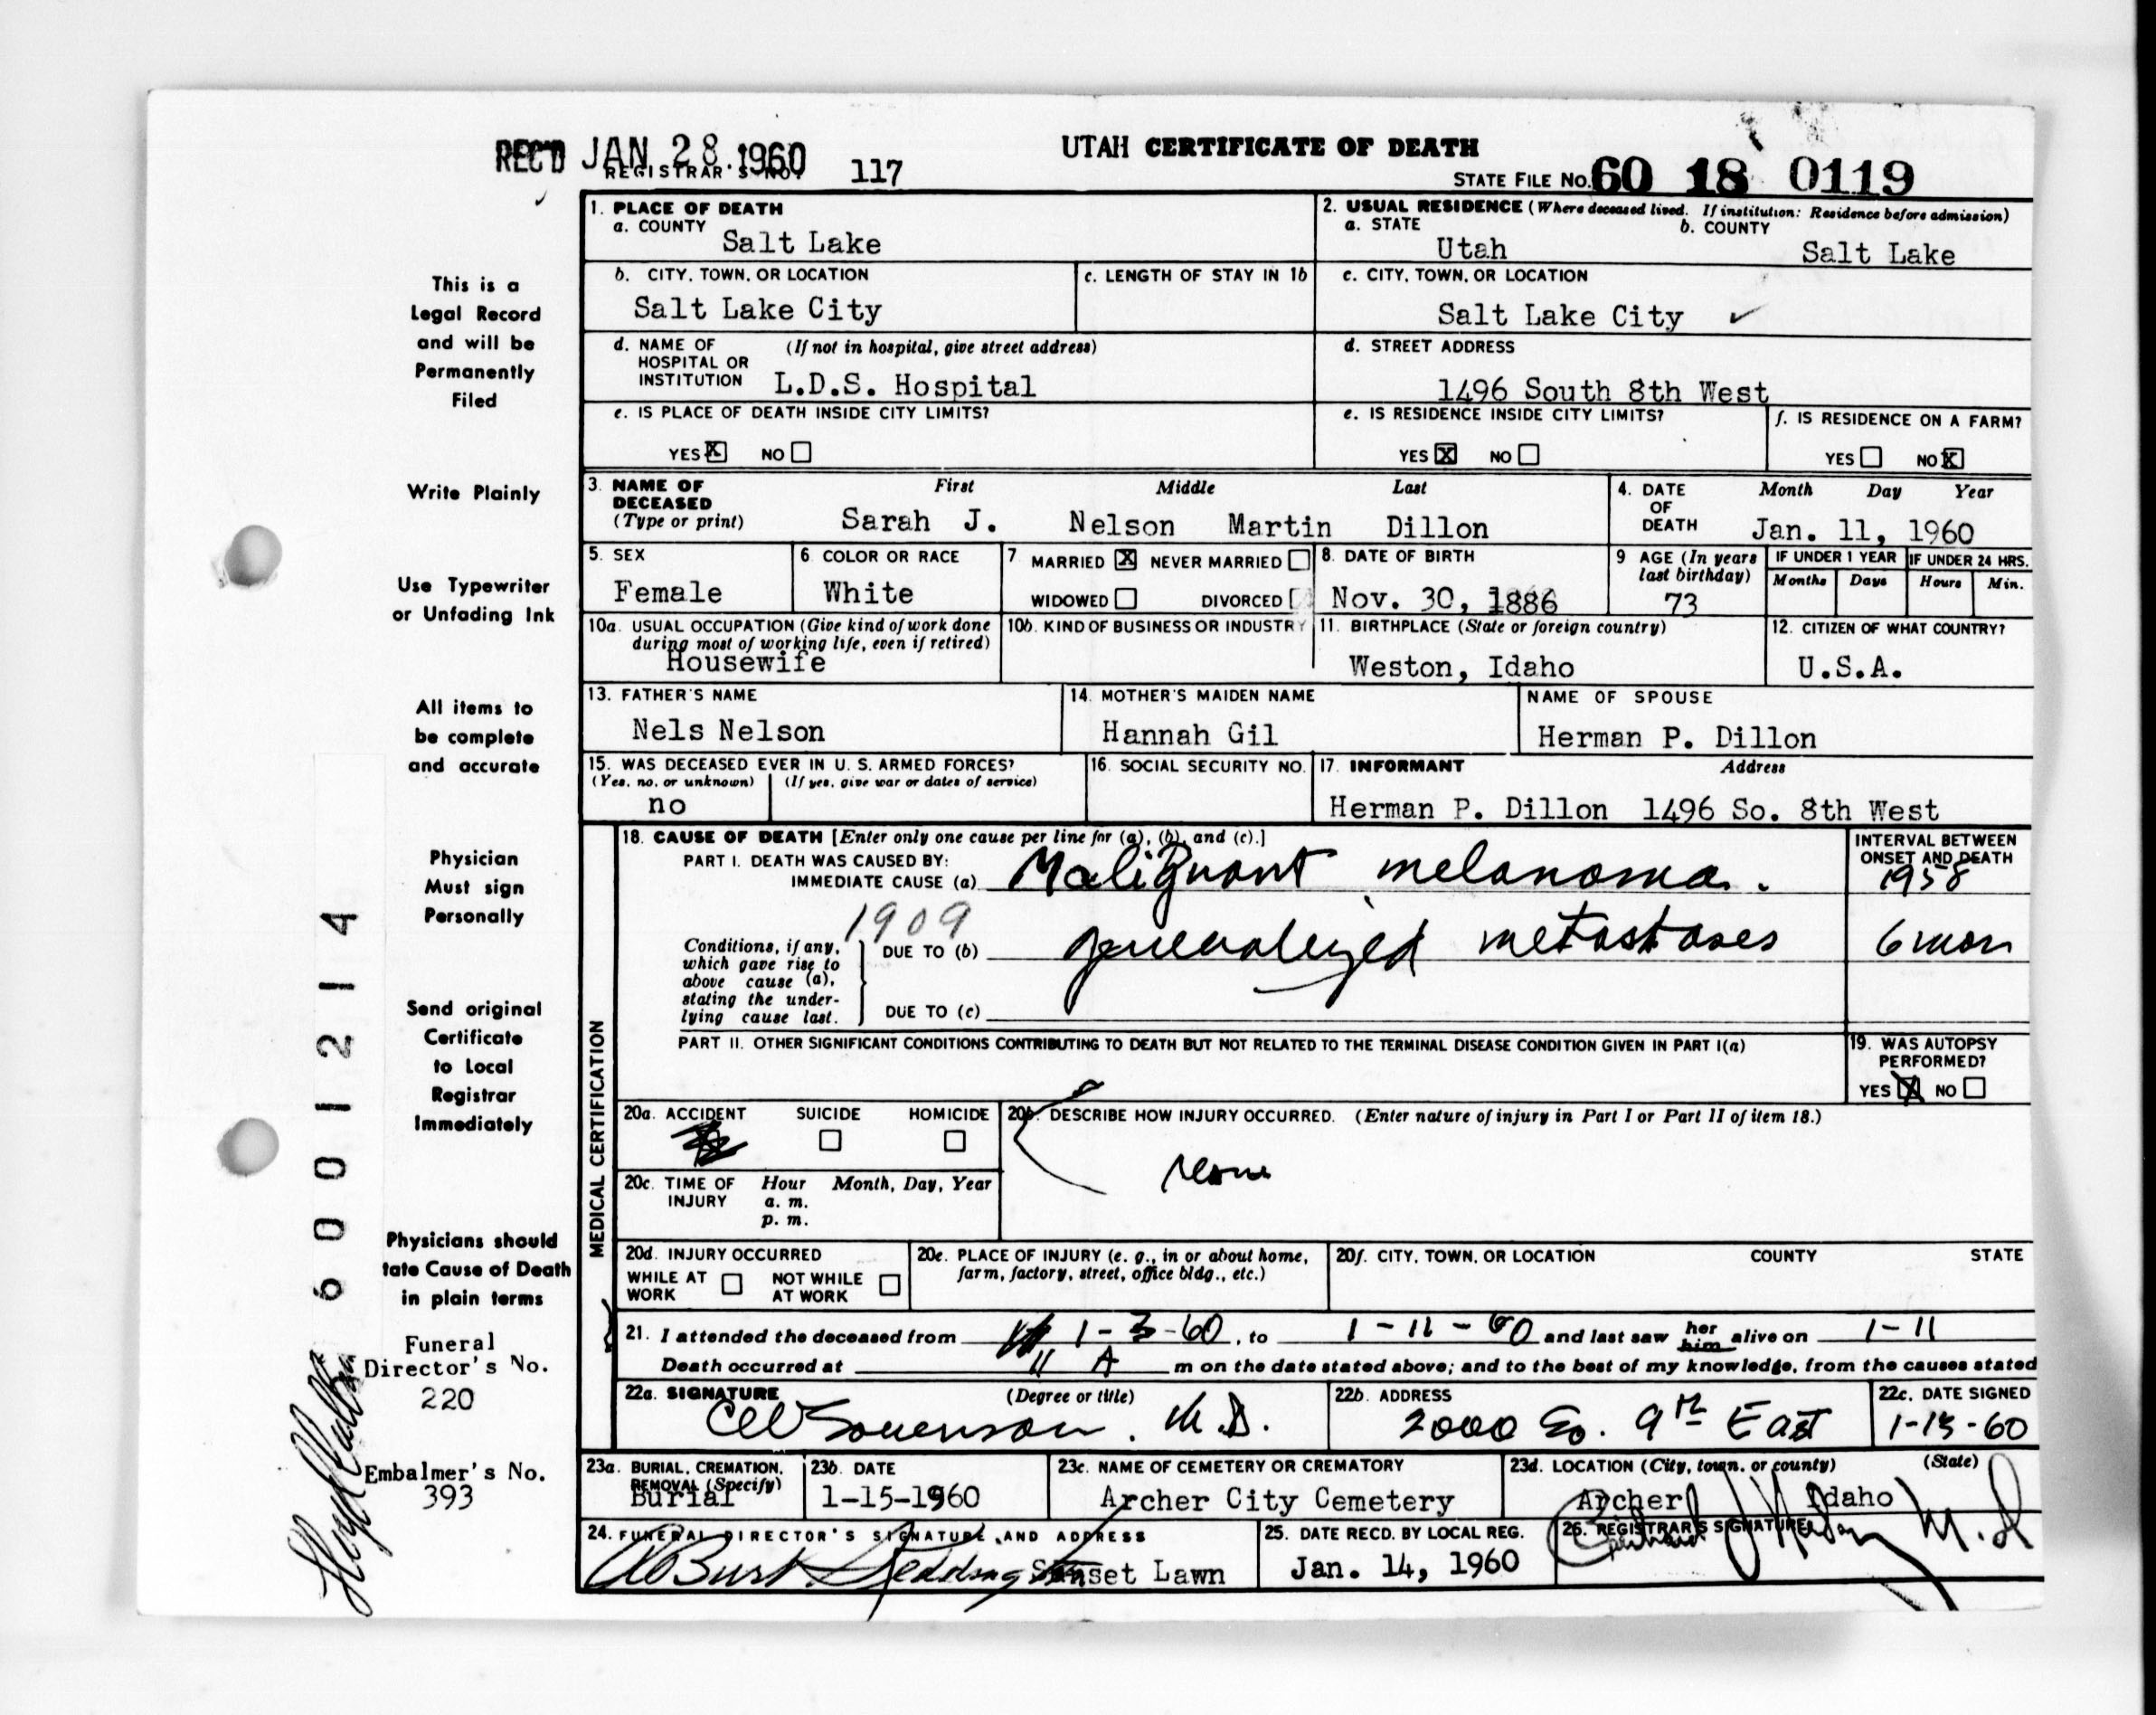 REC'D JAN 28 1960
REGISTRAR'S NO. 117
UTAH CERTIFICATE OF DEATH
STATE FILE NO. 60 18 0119
1. PLACE OF DEATH
a. COUNTY Salt Lake
2. USUAL RESIDENCE (Where deceased lived. If institution: Residence before admission)
a. STATE Utah b. COUNTY Salt Lake
b. CITY, TOWN, OR LOCATION Salt Lake City
c. LENGTH OF STAY IN 1b
c. CITY, TOWN, OR LOCATION Salt Lake City
d. NAME OF HOSPITAL OR INSTITUTION (If not in hospital, give street address) L.D.S. Hospital
d. STREET ADDRESS 1496 South 8th West
e. IS PLACE OF DEATH INSIDE CITY LIMITS?
YES X NO
e. IS RESIDENCE INSIDE CITY LIMITS?
YES X NO
f. IS RESIDENCE ON A FARM?
YES NO X
3. NAME OF DECEASED (Type or print) First Middle Last
Sarah J. Nelson Martin Dillon
4. DATE OF DEATH Month Day Year
Jan. 11, 1960
5. SEX Female
6. COLOR OR RACE White
7 MARRIED X NEVER MARRIED
WIDOWED DIVORCED
8. DATE OF BIRTH Nov. 30, 1886
9 AGE (In years last birthday) 73
IF UNDER 1 YEAR Months Days
IF UNDER 24 HRS. Hours Min.
10a. USUAL OCCUPATION (Give kind of work done during most of working life, even if retired)
Housewife
10b. KIND OF BUSINESS OR INDUSTRY
11. BIRTHPLACE (State or foreign country)
Weston, Idaho
12. CITIZEN OF WHAT COUNTRY?
U.S.A.
13. FATHER'S NAME
Nels Nelson
14. MOTHER'S MAIDEN NAME
Hannah Gil
NAME OF SPOUSE
Herman P. Dillon
15. WAS DECEASED EVER IN U. S. ARMED FORCES?
(Yes, no, or unknown) (If yes, give war or dates of service)
no
16. SOCIAL SECURITY NO.
17. INFORMANT Address
Herman P. Dillon 1496 So. 8th West
MEDICAL CERTIFICATION
18. CAUSE OF DEATH [Enter only one cause per line for (a), (b), and (c).]
PART I. DEATH WAS CAUSED BY:
IMMEDIATE CAUSE (a) Malignant melanoma.
INTERVAL BETWEEN ONSET AND DEATH
1958
1909
Conditions, if any, which gave rise to above cause (a), stating the underlying cause last.
DUE TO (b) generalized metastases 6 mon
DUE TO (c)
PART II. OTHER SIGNIFICANT CONDITIONS CONTRIBUTING TO DEATH BUT NOT RELATED TO THE TERMINAL DISEASE CONDITION GIVEN IN PART I(a)
19. WAS AUTOPSY PERFORMED?
YES X NO
20a. ACCIDENT SUICIDE HOMICIDE
20b. DESCRIBE HOW INJURY OCCURRED. (Enter nature of injury in Part I or Part II of item 18.)
none
20c. TIME OF INJURY Hour Month, Day, Year
a. m.
p. m.
20d. INJURY OCCURRED
WHILE AT WORK NOT WHILE AT WORK
20e. PLACE OF INJURY (e. g., in or about home, farm, factory, street, office bldg., etc.)
20f. CITY, TOWN, OR LOCATION COUNTY STATE
21. I attended the deceased from 1-3-60, to 1-11-60 and last saw her him alive on 1-11
Death occurred at 11 A m on the date stated above; and to the best of my knowledge, from the causes stated
22a. SIGNATURE (Degree or title)
Sorenson. M.D.
22b. ADDRESS
2000 So. 9th East
22c. DATE SIGNED
1-13-60
23a. BURIAL, CREMATION, REMOVAL (Specify)
Burial
23b. DATE
1-15-1960
23c. NAME OF CEMETERY OR CREMATORY
Archer City Cemetery
23d. LOCATION (City, town, or county) (State)
Archer Idaho
24. FUNERAL DIRECTOR'S SIGNATURE AND ADDRESS
Sunset Lawn
25. DATE RECD. BY LOCAL REG.
Jan. 14, 1960
26. REGISTRAR'S SIGNATURE
M.D
This is a
Legal Record
and will be
Permanently
Filed
Write Plainly
Use Typewriter
or Unfading Ink
All items to
be complete
and accurate
Physician
Must sign
Personally
Send original
Certificate
to Local
Registrar
Immediately
Physicians should
tate Cause of Death
in plain terms
Funeral
Director's No.
220
Embalmer's No.
393
6001214